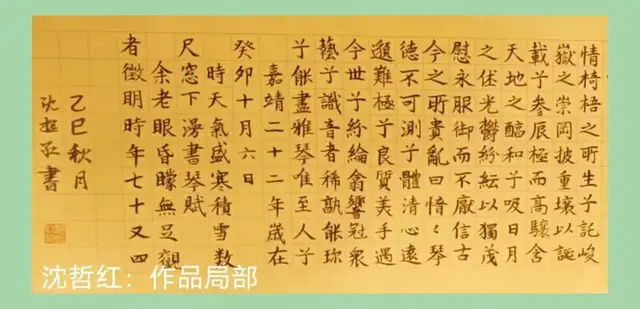 惟椅梧之所生兮託峻
嶽之崇岡披重壤以誕
載兮參辰極而高驤含
天地之醇和兮吸日月
之休光鬱紛紜以獨茂
慰永服御而不厭信古
今之所貴亂曰愔〻琴
德不可測兮體清心遠
邈難極兮良質美手遇
今世兮紛綸翕響冠衆
藝兮識音者稀孰能珎
兮能盡雅琴唯至人兮
嘉靖二十二年歲在
癸卯十月六日
時天氣盛寒積雪數
尺窓下漫書琴賦
余老眼昏矇無足觀
者徵明時年七十又四
乙巳秋月
沈哲红書
沈哲红：作品局部